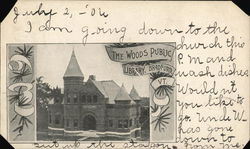 July 2, -'06
I am going down to the
church this
P.M and
wash dishes
Would nt
you like to
go. Uncle W.
has gone
down to
THE WOODS PUBLIC
LIBRARY, BRADFORD
VT